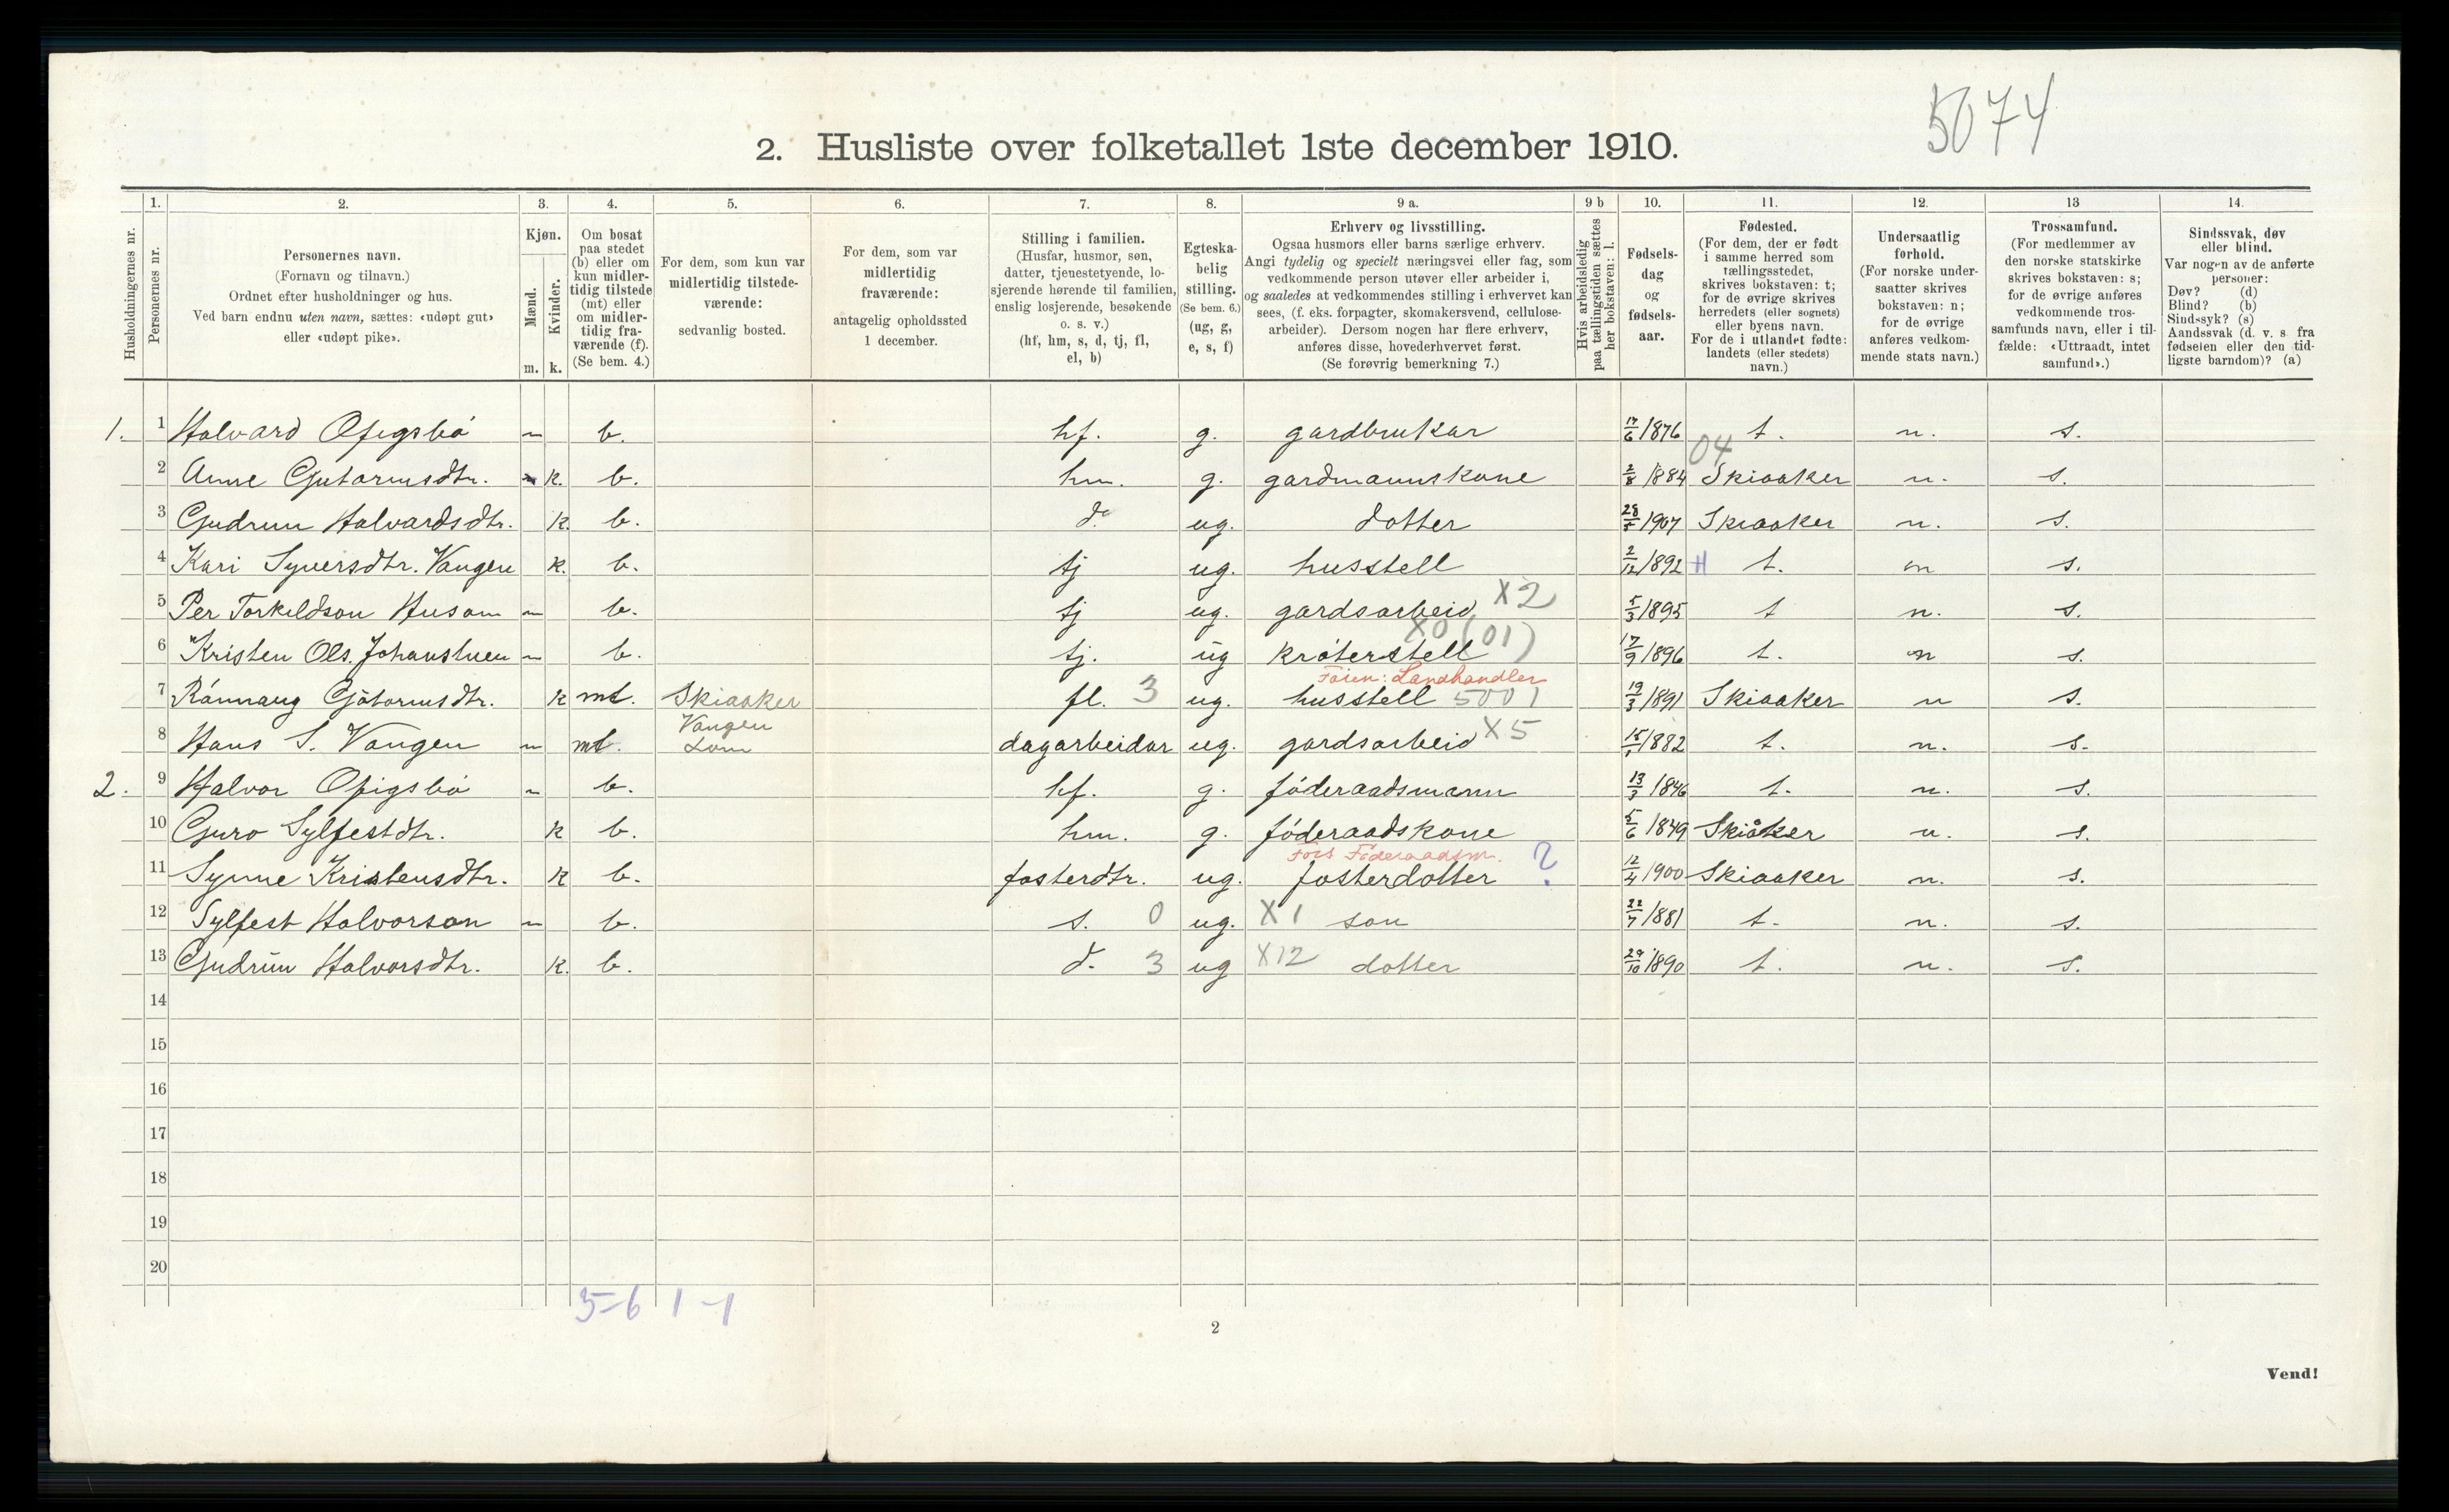 5074
2. Husliste over folketallet 1ste december 1910.
Husholdningernes nr.
1.
Personernes nr.
2.
Personernes navn.
(Fornavn og tilnavn.)
Ordnet efter husholdninger og hus.
Ved barn endnu uten navn, sættes: «udøpt gut»
eller «udøpt pike».
3.
Kjøn.
Mænd.
Kvinder.
m. k.
4.
Om bosat
paa stedet
(b) eller om
kun midler-
tidig tilstede
(mt) eller
om midler-
tidig fra-
værende (f).
(Se bem. 4.)
5.
For dem, som kun var
midlertidig tilstede-
værende:
sedvanlig bosted.
6.
For dem, som var
midlertidig
fraværende:
antagelig opholdssted
1 december.
7.
Stilling i familien.
(Husfar, husmor, søn,
datter, tjenestetyende, lo-
sjerende hørende til familien,
enslig losjerende, besøkende
o. s. v.)
(hf, hm, s, d, tj, fl,
el, b)
8.
Egteska-
belig
stilling.
(Se bem. 6.)
(ug, g,
e, s, f)
9 a.
Erhverv og livsstilling.
Ogsaa husmors eller barns særlige erhverv.
Angi tydelig og specielt næringsvei eller fag, som
vedkommende person utøver eller arbeider i,
og saaledes at vedkommendes stilling i erhvervet kan
sees, (f. eks. forpagter, skomakersvend, cellulose-
arbeider). Dersom nogen har flere erhverv,
anføres disse, hovederhvervet først.
(Se forøvrig bemerkning 7.)
9 b
Hvis arbeidsledig
paa tællingstiden sættes
her bokstaven: l.
10.
Fødsels-
dag
og
fødsels-
aar.
11.
Fødested.
(For dem, der er født
i samme herred som
tællingsstedet,
skrives bokstaven: t;
for de øvrige skrives
herredets (eller sognets)
eller byens navn.
For de i utlandet fødte:
landets (eller stedets)
navn.)
12.
Undersaatlig
forhold.
(For norske under-
saatter skrives
bokstaven: n;
for de øvrige
anføres vedkom-
mende stats navn.)
13
Trossamfund.
(For medlemmer av
den norske statskirke
skrives bokstaven: s;
for de øvrige anføres
vedkommende tros-
samfunds navn, eller i til-
fælde: «Uttraadt, intet
samfund».)
14.
Sindssvak, døv
eller blind.
Var nogen av de anførte
personer:
Døv? (d)
Blind? (b)
Sindssyk? (s)
Aandssvak (d. v. s. fra
fødselen eller den tid-
ligste barndom)? (a)
1. 1 Halvard Ofigsbø m b. hf. g. gardbrukar 17/6 1876 t. n. s.
04
2 Anne Gutormsdtr. k. b. hm. g. gardmannskone 2/8 1884 Skiaaker n. s.
3 Gudrun Halvardsdtr. k. b. d. ug. dotter 28/5 1907 Skiaaker n. s.
4 Kari Syversdtr. Vangen k. b. tj ug. husstell 2/12 1892 t. n s.
5 Per Torkildson Husom m b. tj ug. gardsarbeid X2 5/3 1895 t n. s.
X0 (01)
6 Kristen Ols. Johanstuen m b. tj. ug krøterstell 17/9 1896 t. n s.
Landhandler
7 Rånnaug Gøtormsdtr. k mt. Skiaaker fl. 3 ug. husstell 5001 19/3 1891 Skiaaker n s.
Vangen
8 Hans S. Vangen m mt. Lom dagarbeidar ug. gardsarbeid X5 1882 t. n. s.
2. 9 Halvor Ofigsbø m b. hf. g. føderaadsmann 13/3 1846 t. n. s.
10 Guro Sylfestdtr. k b. hm. g. føderaadskone 5/6 1849 Skiåker n. s.
Fors Føderaadsm. ?
11 Synne Kristensdtr. k b. fosterdtr. ug. fosterdotter 12/4 1900 Skiaaker n. s.
12 Sylfest Halvorson m b. s. 0 ug. X1 son 22/7 1881 t. n. s.
13 Gudrun Halvorsdtr. k. b. d. 3 ug X12 dotter 29/10 1890 t. n. s.
14
15
16
17
18
19
20
5-6 1-1
2
Vend!